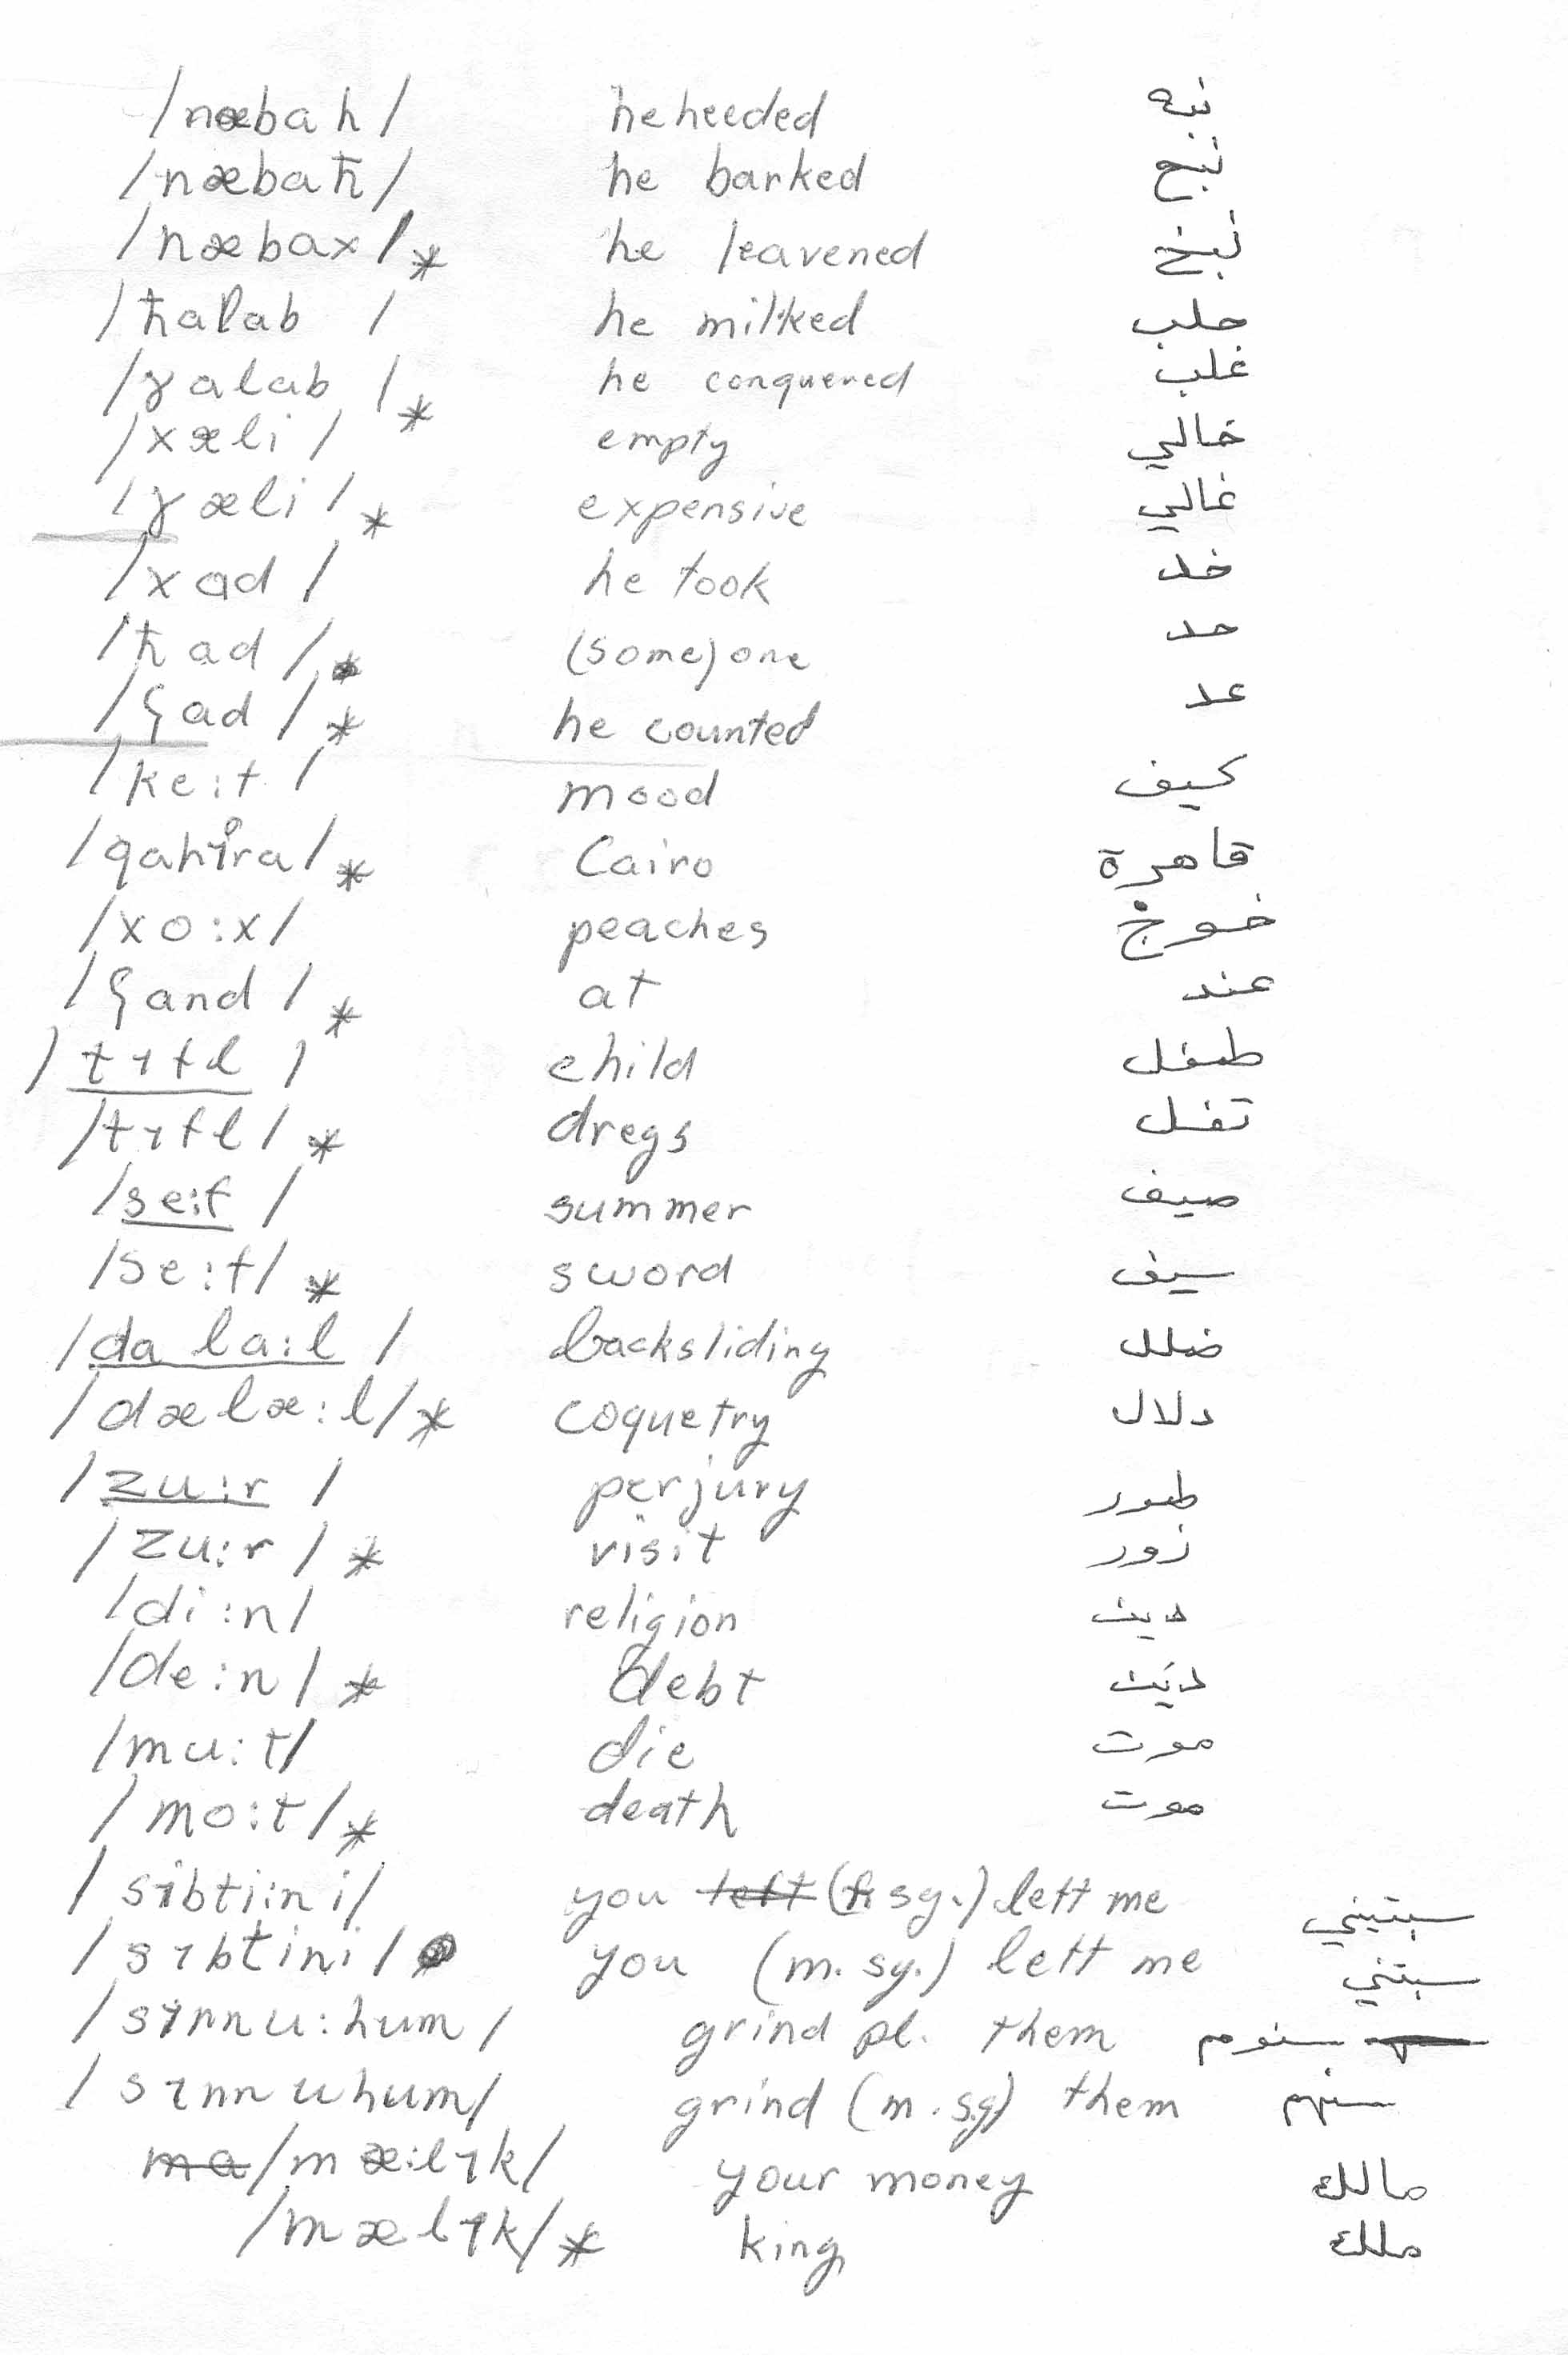 /næbah/ he heeded نبه
/næbaħ/ he barked نبح
/næbax/* he leavened نبخ
/ħalab/ he milked حلب
/ɣalab/* he conquered غلب
/xæli/ empty خالي
/ɣæli/* expensive غالي
/xad/ he took خد
/ħad/* (some)one حد
/ʕad/* he counted عد
/ke:f/ mood كيف
/qahɪra/* Cairo قاهرة
/xo:x/ peaches خوخ
/ʕand/* at عند
/tɪfl/ child طفل
/tɪfl/* dregs تفل
/se:f/ summer صيف
/se:f/* sword سيف
/dala:l/ backsliding ضلال
/dælæ:l/* coquetry دلال
/zu:r/ perjury ظور
/zu:r/* visit زور
/di:n/ religion دين
/de:n/* debt دين
/mu:t/ die موت
/mo:t/* death موت
/sɪbti:ni/ you left (f. sg.) left me سبتيني
/sɪbtini/ you (m. sg.) left me سبتني
/sɪnnu:hum/ grind pl. them سنوم
/sɪnnuhum/ grind (m. sg) them سنهم
ma /mæ:lɪk/ your money مالك
/mælɪk/* king ملك